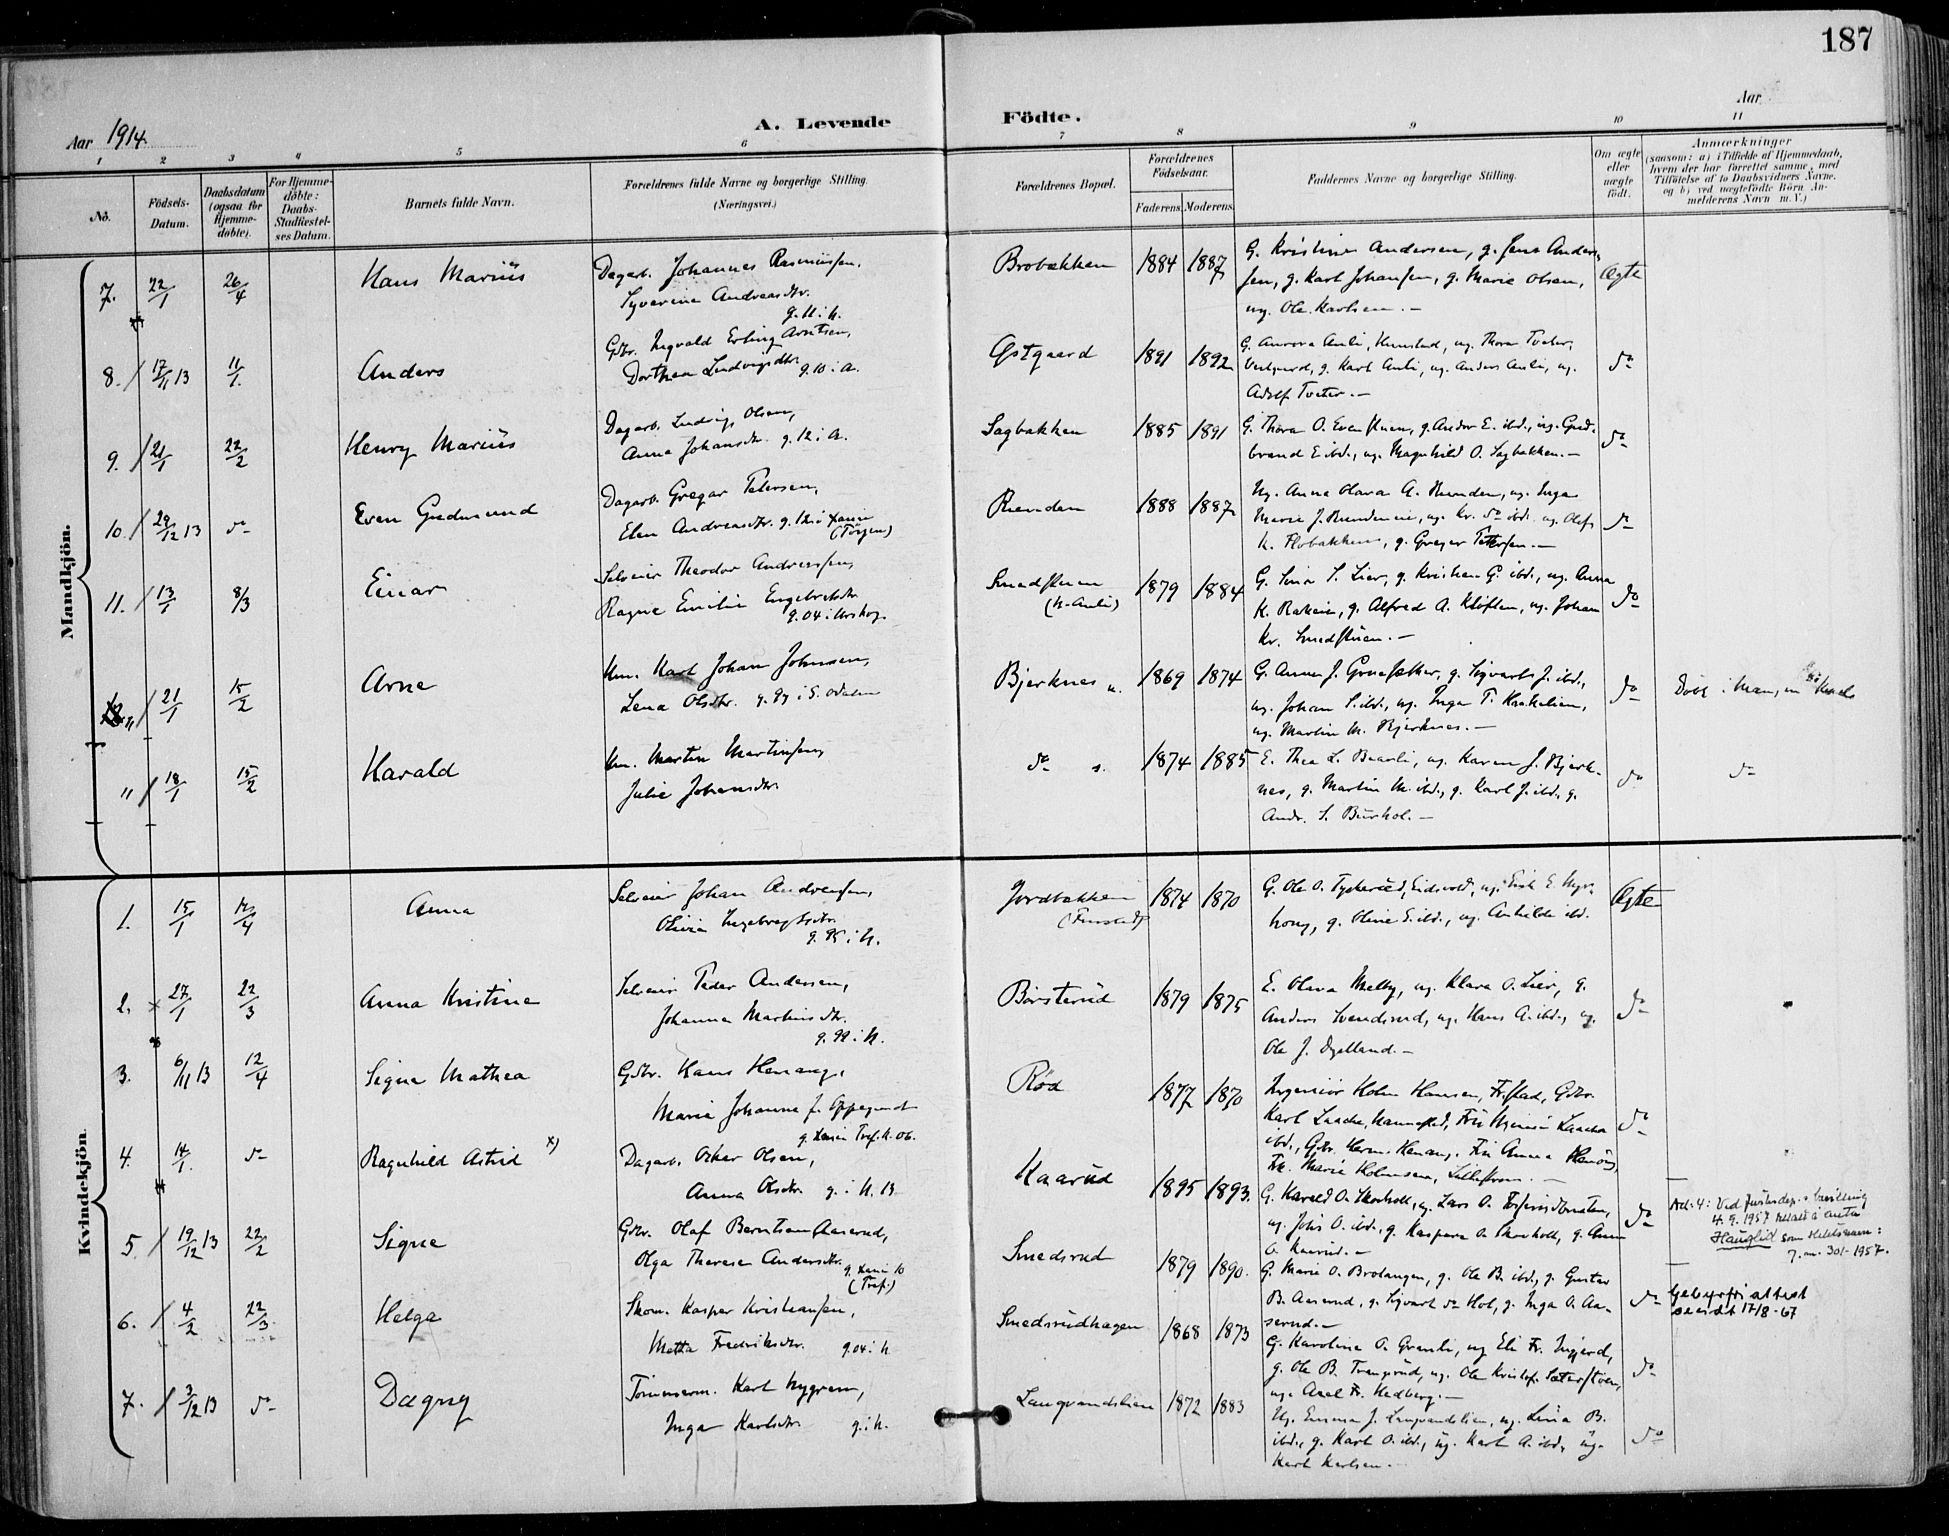 187
Aar 1914
A. Levende Födte.
Aar
1 2 3 4 5 6 7 8 9 10 11
No.
Födsels-Datum.
Daabsdatum (ogsaa for Hjemme-döbte).
For Hjemme-döbte: Daabs-Stadfæstel-ses Datum.
Barnets fulde Navn.
Forældrenes fulde Navne og borgerlige Stilling. (Næringsvei.)
Forældrenes Bopæl.
Forældrenes Födselsaar.
Faderens. Moderens.
Faddernes Navne og borgerlige Stilling.
Om ægte eller uægte födt.
Anmærkninger
(saasom: a) i Tilfælde af Hjemmedaab,
hvem der har forrettet samme, med
Tilföielse af to Daabsvidners Navne.
og b) ved uægtefödte Börn An-
melderens Navn m. V.)
Mandkjön.
7. 22/1 26/4 Hans Marius
Dagarb. Johannes Rasmussen,
Syverine Andreasdtr.
g. 11 i H.
Brobakken 1884 1887
G. Kristine Andersen, g. Jens Ander-
sen, g. Karl Johansen, g. Marie Olsen,
ug. Ole Karlsen.-
Ægte
8. / 17/11 13 11/1. Anders
Gbr. Ingvald Erling Arntsen,
Dorthea Ludvigsdtr. g. 10 i A.
Østgaard 1891 1892
G. Aurora Auli, Hunstad, ug. Thora Tveter,
Vestgaard, g. Karl Auli, ug. Anders Auli, ug.
Adolf Tveter.-
do
9. / 21/1 22/2 Henry Marius
Dagarb. Ludvig Olsen,
Anna Johansdtr. g. 12 i A.
Sagbakken 1885 1891
G. Thora O. Evenstuen, g. Andor E. ibd., ug. Gud-
brand E. ibd., ug. Magnhild O. Sagbakken.-
do
10. / 29/12 13 do Even Gudmund
Dagarb. Gregar Petersen,
Elen Andreasdtr. g. 12 i Xania
Runden 1888 1887
Ug. Anna Olava A. Runden, ug. Inga
Marie J. ug. Kr. do ibd. ug. Olef
K. Flobakken, g. Gregar Pettersen.-
do
11. / 13/1 8/3 Einar
Selveier Theodor Andreassen,
Ragna Emilie Engebretsdtr.
g. 04 i Urskog.
Smedstuen
(N. Auli)
1879 1884
G. Lina S. Lier, g. Kristian G. ibd., ug. Anna
K. Rakeie, g. Alfred A. Kløften, ug. Johan
Kr. Smedstuen.-
do
" / 21/1 15/2 Arne
Um. Karl Johan Johnsen,
Lena Olsdtr. g. 97 i S. Odalen
Bjerknes n. 1869 1874
G. Anne J. g. Sigvart J. ibd.,
ug. Johan S. ibd., ug. Inga T.
ug. Martin M. Bjerknes.-
do
Døbt i
" / 18/1 15/2 Harald
Um. Martin Martinsen,
Julie Johansdtr.
do s. 1874 1885
E. Thea L. Baarli, ug. Karen J. Bjerk-
nes, g. Martin M. ibd., g. Karl J. ibd., g.
Andr. S. Burhol.-
do do
Kvindekjön.
1. 15/1 12/4 Anna
Selveier Johan Andreassen,
Olivia Ingebregtsdtr.
g. 95 i N.
Jordbakken 1874 1870
G. Ole O. Tyskerud, Eidsvold, ug.
g. Oline E. ibd., ug. ibd.
Ægte
2. x 27/1 22/3 Anna Kristine
Selveier Peder Andersen,
Johanna Martinsdtr.
g. 99 i N.
Børsterud 1879 1875
E. Olava Melby, ug. Klara O. Lier, g.
Anders Svendsrud, ug. Hans A. ibd., ug.
Ole J. Dystland.-
do
3. 6/11 13 12/4 Signe Mathea
Gbr. Hans Henang,
Marie Johanna f. Oppegaard
g. Xania Tref. K. 06.
Rød 1877 1870
Ingeniør Holm Hansen, Fr.stad, Gbr.
Karl Laache, Fru Laache
ibd., Gbr. Herm. Henang, Fru Anna Henang,
Frk. Marie Holmsen, Lillestrøm.-
do
4. 14/1. do Ragnhild Astrid x)
Dagarb. Oskar Olsen,
Anna Olsdtr. g. i N. 13.
Kaarud 1895 1893.
G. Harald O. Skarholt, ug. Lars O.
ug. Johs O. ibd., g. Kaspara O. Skarholt, g. Anna
O. Kaarud.-
do
Ad. 4: Ved Justisdep.s bevilling
4. 9. 1957 tillatt å anta
Hauglid som slektsnavn:
J. nr. 301-1957.
5. / 19/12 13 22/2 Signe
Gbr. Olaf Berntsen Aaserud,
Olga Therese Andersdtr. g. Xania 10
(Tref.)
Smedsrud 1879 1890.
G. Marie O. Brotangen, g. Ole B. ibd., g. Gustav
B. Aaserud, g. Sigvart do Hol, g. Inga O. Aa-
serud.-
do
Gebyrfri attest
sendt 17/8-67
6. / 4/2 22/3 Helga
Skom. Kasper Kristiansen,
Mathea Fredriksdtr. g. 04 i N.
Smedsrudhagen 1868 1873
G. Karoline O. Granli, ug. Eli Fr. Ingjerd,
g. Ole B. Trangsrud, ug. Ole Kristofr. Sæterstøen,
ug. Axel Fr. Hedberg.-
do
7. / 3/12 13 do Dagny
Tömmerm. Karl Nygren,
Inga Karlsdtr. g. i N.
Langvandslien 1872 1883
Ug. Emma J. Langvandslien, ug. Lina B.
ibd., g. Karl O. ibd., ug. Karl A. ibd., ug.
Karl Karlsen.-
do